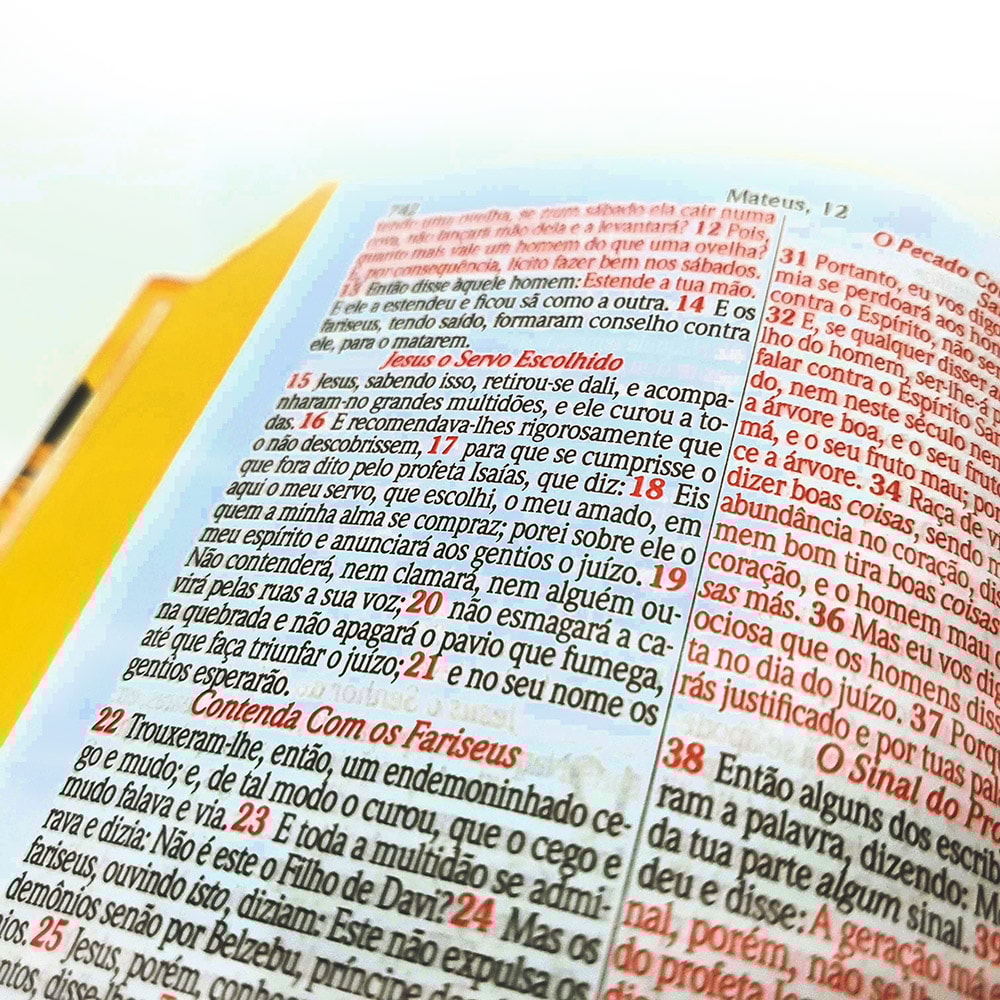 742
Mateus, 12
tendo uma ovelha, se num sábado ela cair numa
cova, não lançará mão dela e a levantará? 12 Pois,
quanto mais vale um homem do que uma ovelha?
É, por consequência, lícito fazer bem nos sábados.
13 Então disse àquele homem: Estende a tua mão.
E ele a estendeu e ficou sã como a outra. 14 E os
fariseus, tendo saído, formaram conselho contra
ele, para o matarem.
Jesus o Servo Escolhido
15 Jesus, sabendo isso, retirou-se dali, e acompa-
nharam-no grandes multidões, e ele curou a to-
das. 16 E recomendava-lhes rigorosamente que
o não descobrissem, 17 para que se cumprisse o
que fora dito pelo profeta Isaías, que diz: 18 Eis
aqui o meu servo, que escolhi, o meu amado, em
quem a minha alma se compraz; porei sobre ele o
meu espírito e anunciará aos gentios o juízo. 19
Não contenderá, nem clamará, nem alguém ou-
virá pelas ruas a sua voz; 20 não esmagará a ca-
na quebrada e não apagará o pavio que fumega,
até que faça triunfar o juízo; 21 e no seu nome os
gentios esperarão.
Contenda Com os Fariseus
22 Trouxeram-lhe, então, um endemoninhado ce-
go e mudo; e, de tal modo o curou, que o cego e
mudo falava e via. 23 E toda a multidão se admi-
rava e dizia: Não é este o Filho de Davi? 24 Mas os
fariseus, ouvindo isto, diziam: Este não expulsa os
demônios senão por Belzebu, príncipe
25 Jesus, porém,
O Pecado
31 Portanto, eu vos
mia se perdoará aos
contra o Espírito, não
32 E, se qualquer disser
lho do homem, ser-lhe-á
falar contra o Espírito
do, nem neste século
a árvore boa, e o seu
má, e o seu fruto mau;
ce a árvore. 34 Raça de
dizer boas coisas, sendo
abundância no coração,
mem bom tira boas coisas
coração, e o homem mau
sas más. 36 Mas eu vos
ociosa que os homens
ta no dia do juízo. 37
rás justificado e por tuas
O Sinal do
38 Então alguns dos
ram a palavra, dizendo:
da tua parte algum sinal. 39
deu e disse: A geração má
nal, porém, não
do profeta